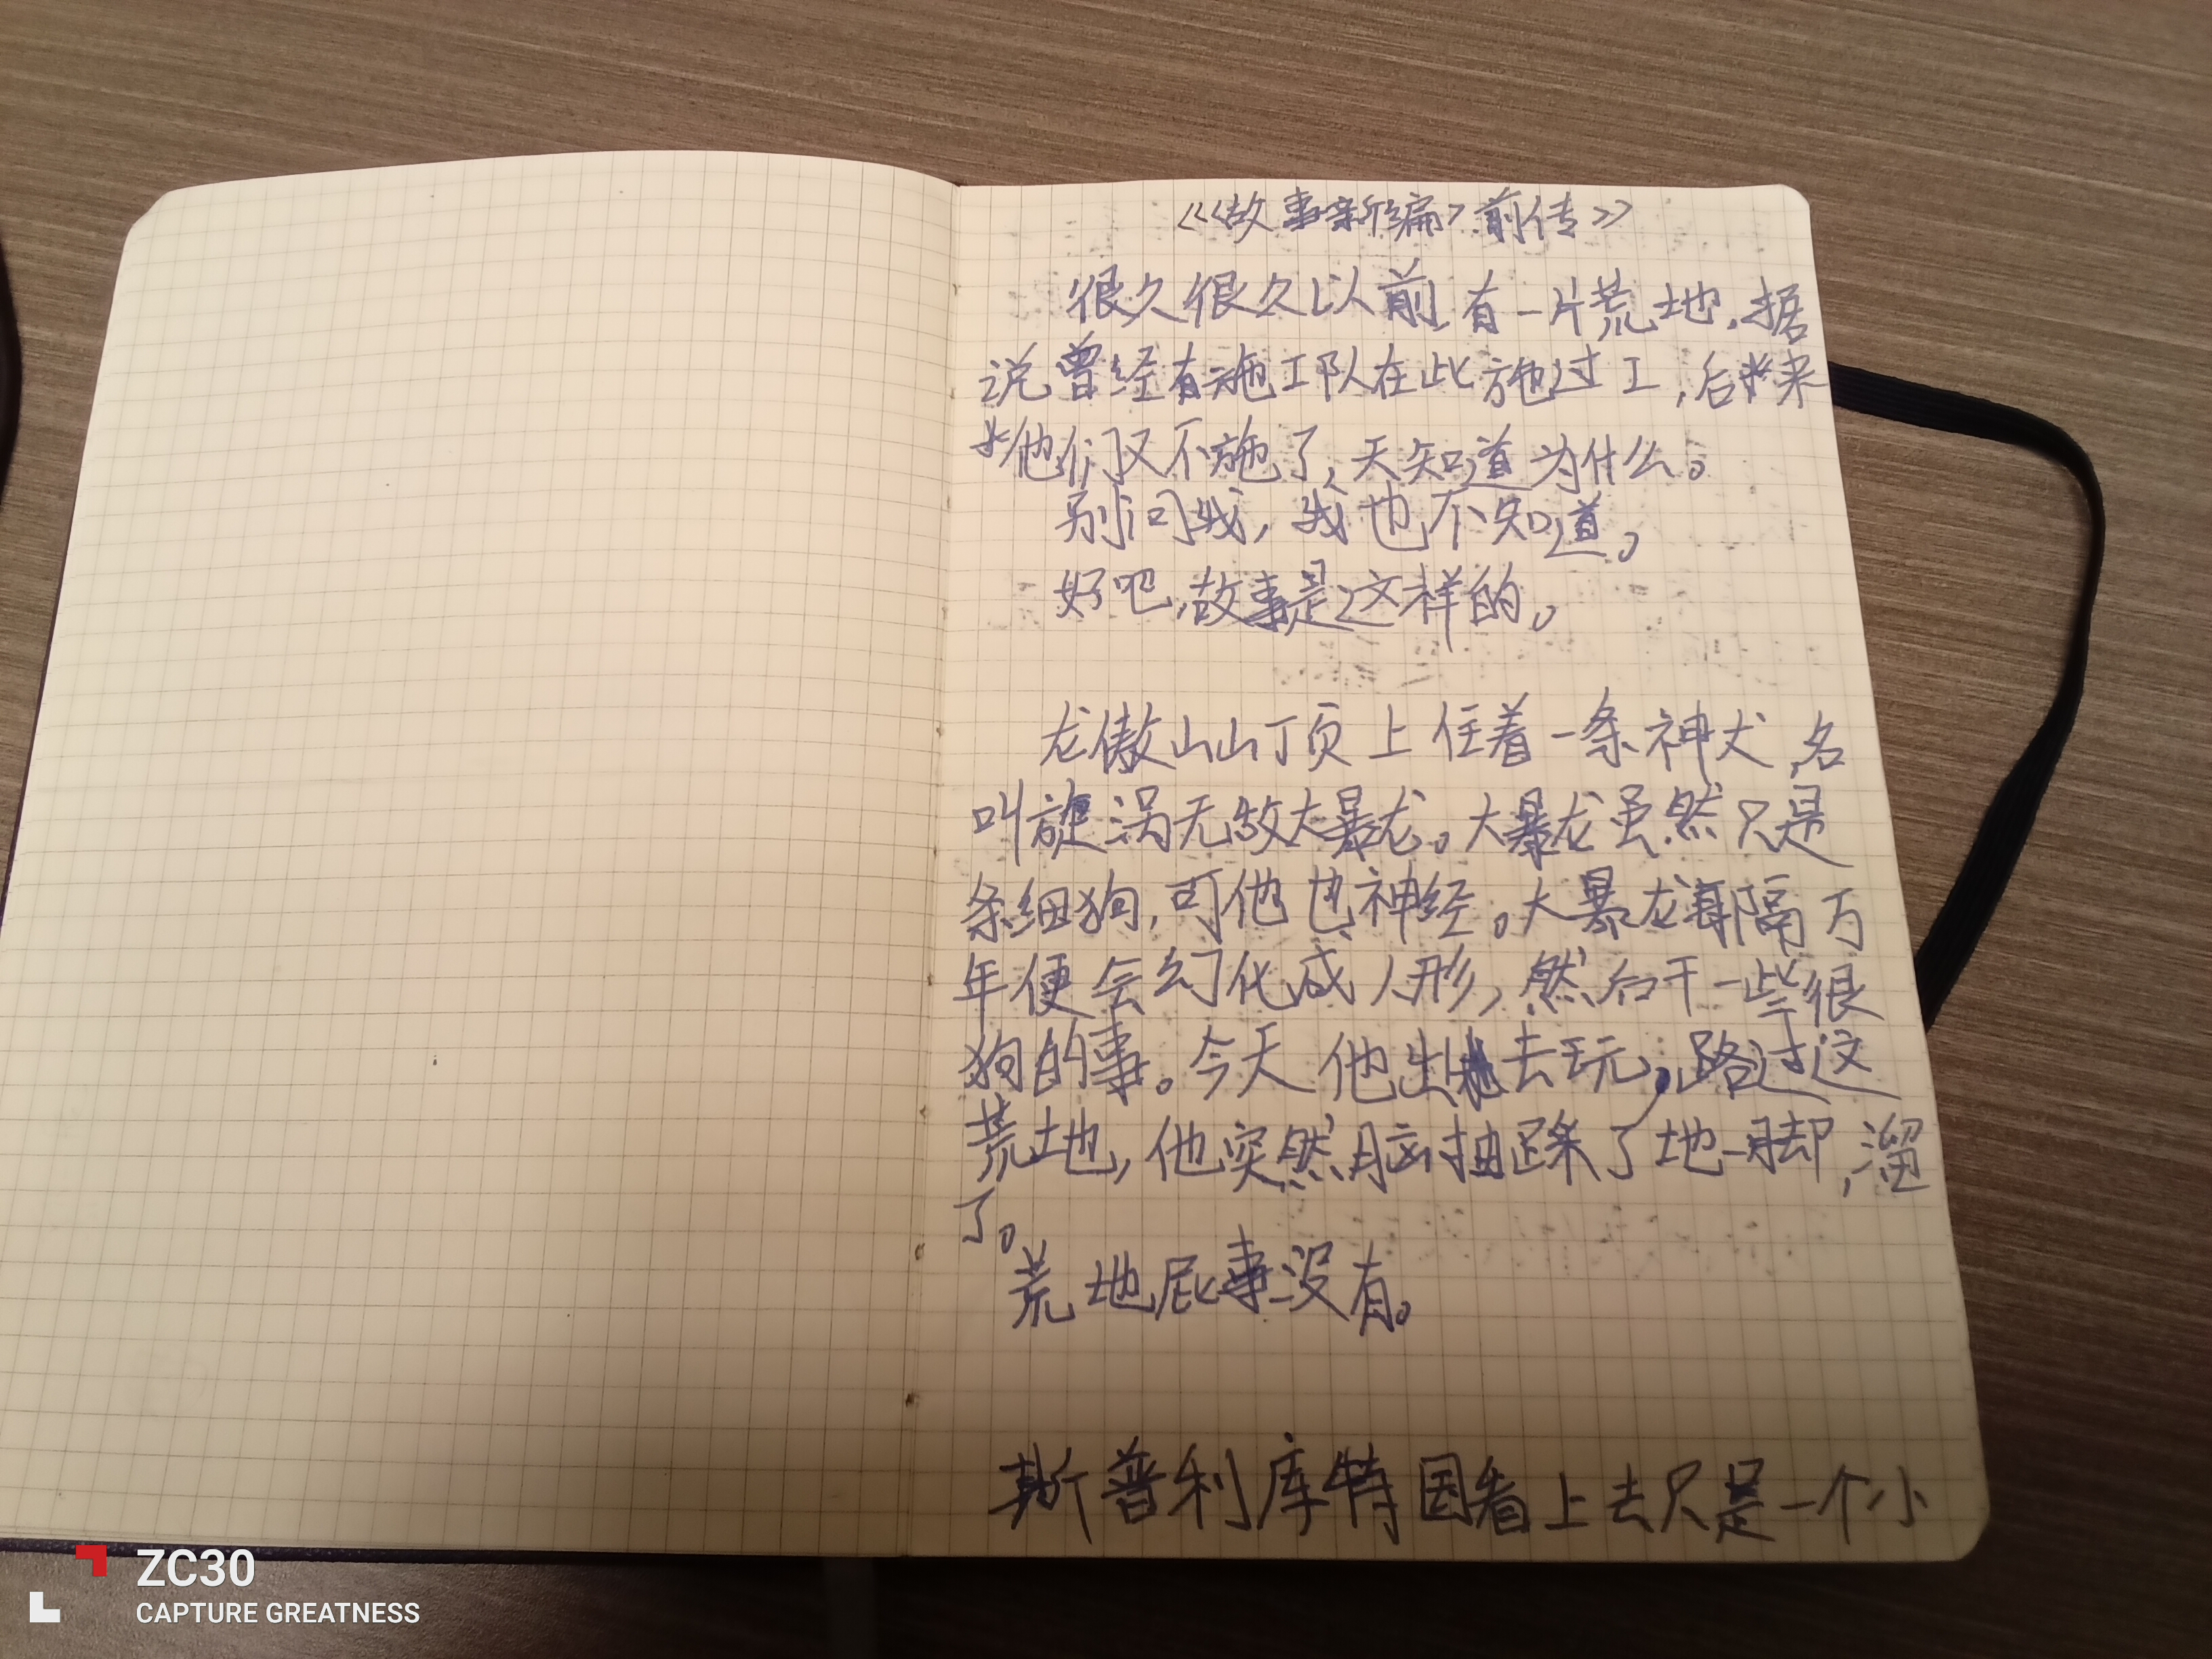 《<故事新编>前传》
很久很久以前,有一片荒地,据
说曾经有施工队在此施过工,后来
他们又不施了,天知道为什么。
别问我,我也不知道。
好吧,故事是这样的。
龙傲山山顶上住着一条神犬,名
叫旋涡无敌大暴龙。大暴龙虽然只是
条细狗,可他也神经。大暴龙每隔万
年便会幻化成人形,然后干一些很
狗的事。今天他出去玩,路过这
荒地,他突然脑抽跺了地一脚,溜
了。
荒地屁事没有。
斯普利库特因看上去只是一个小
ZC30
CAPTURE GREATNESS